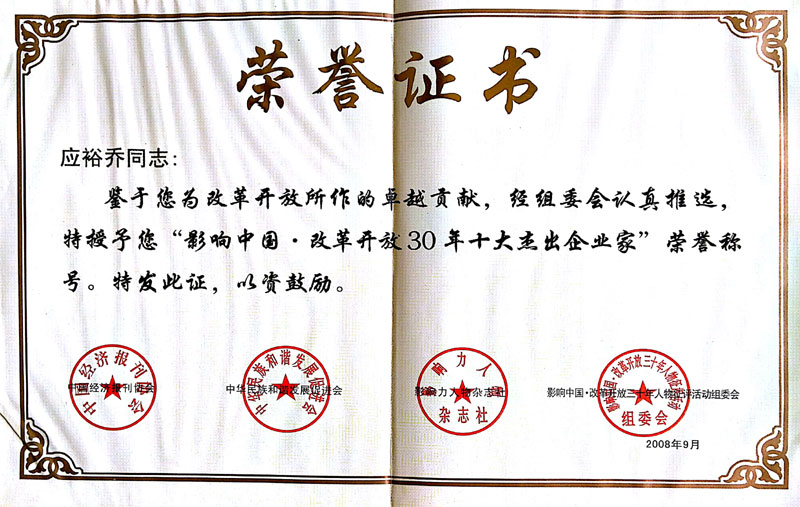 荣誉证书
应裕乔同志：
鉴于您为改革开放所作的卓越贡献，经组委会认真推选，
特授予您“影响中国·改革开放30年十大杰出企业家”荣誉称
号。特发此证，以资鼓励。
中国经济报刊协会
中国经济报刊协会
中华民族和谐发展促进会
中华民族和谐发展促进会
影响力人物杂志社
影响力人物
杂志社
影响中国·改革开放三十年人物推评活动组委会
影响中国·改革开放三十年人物
组委会
2008年9月